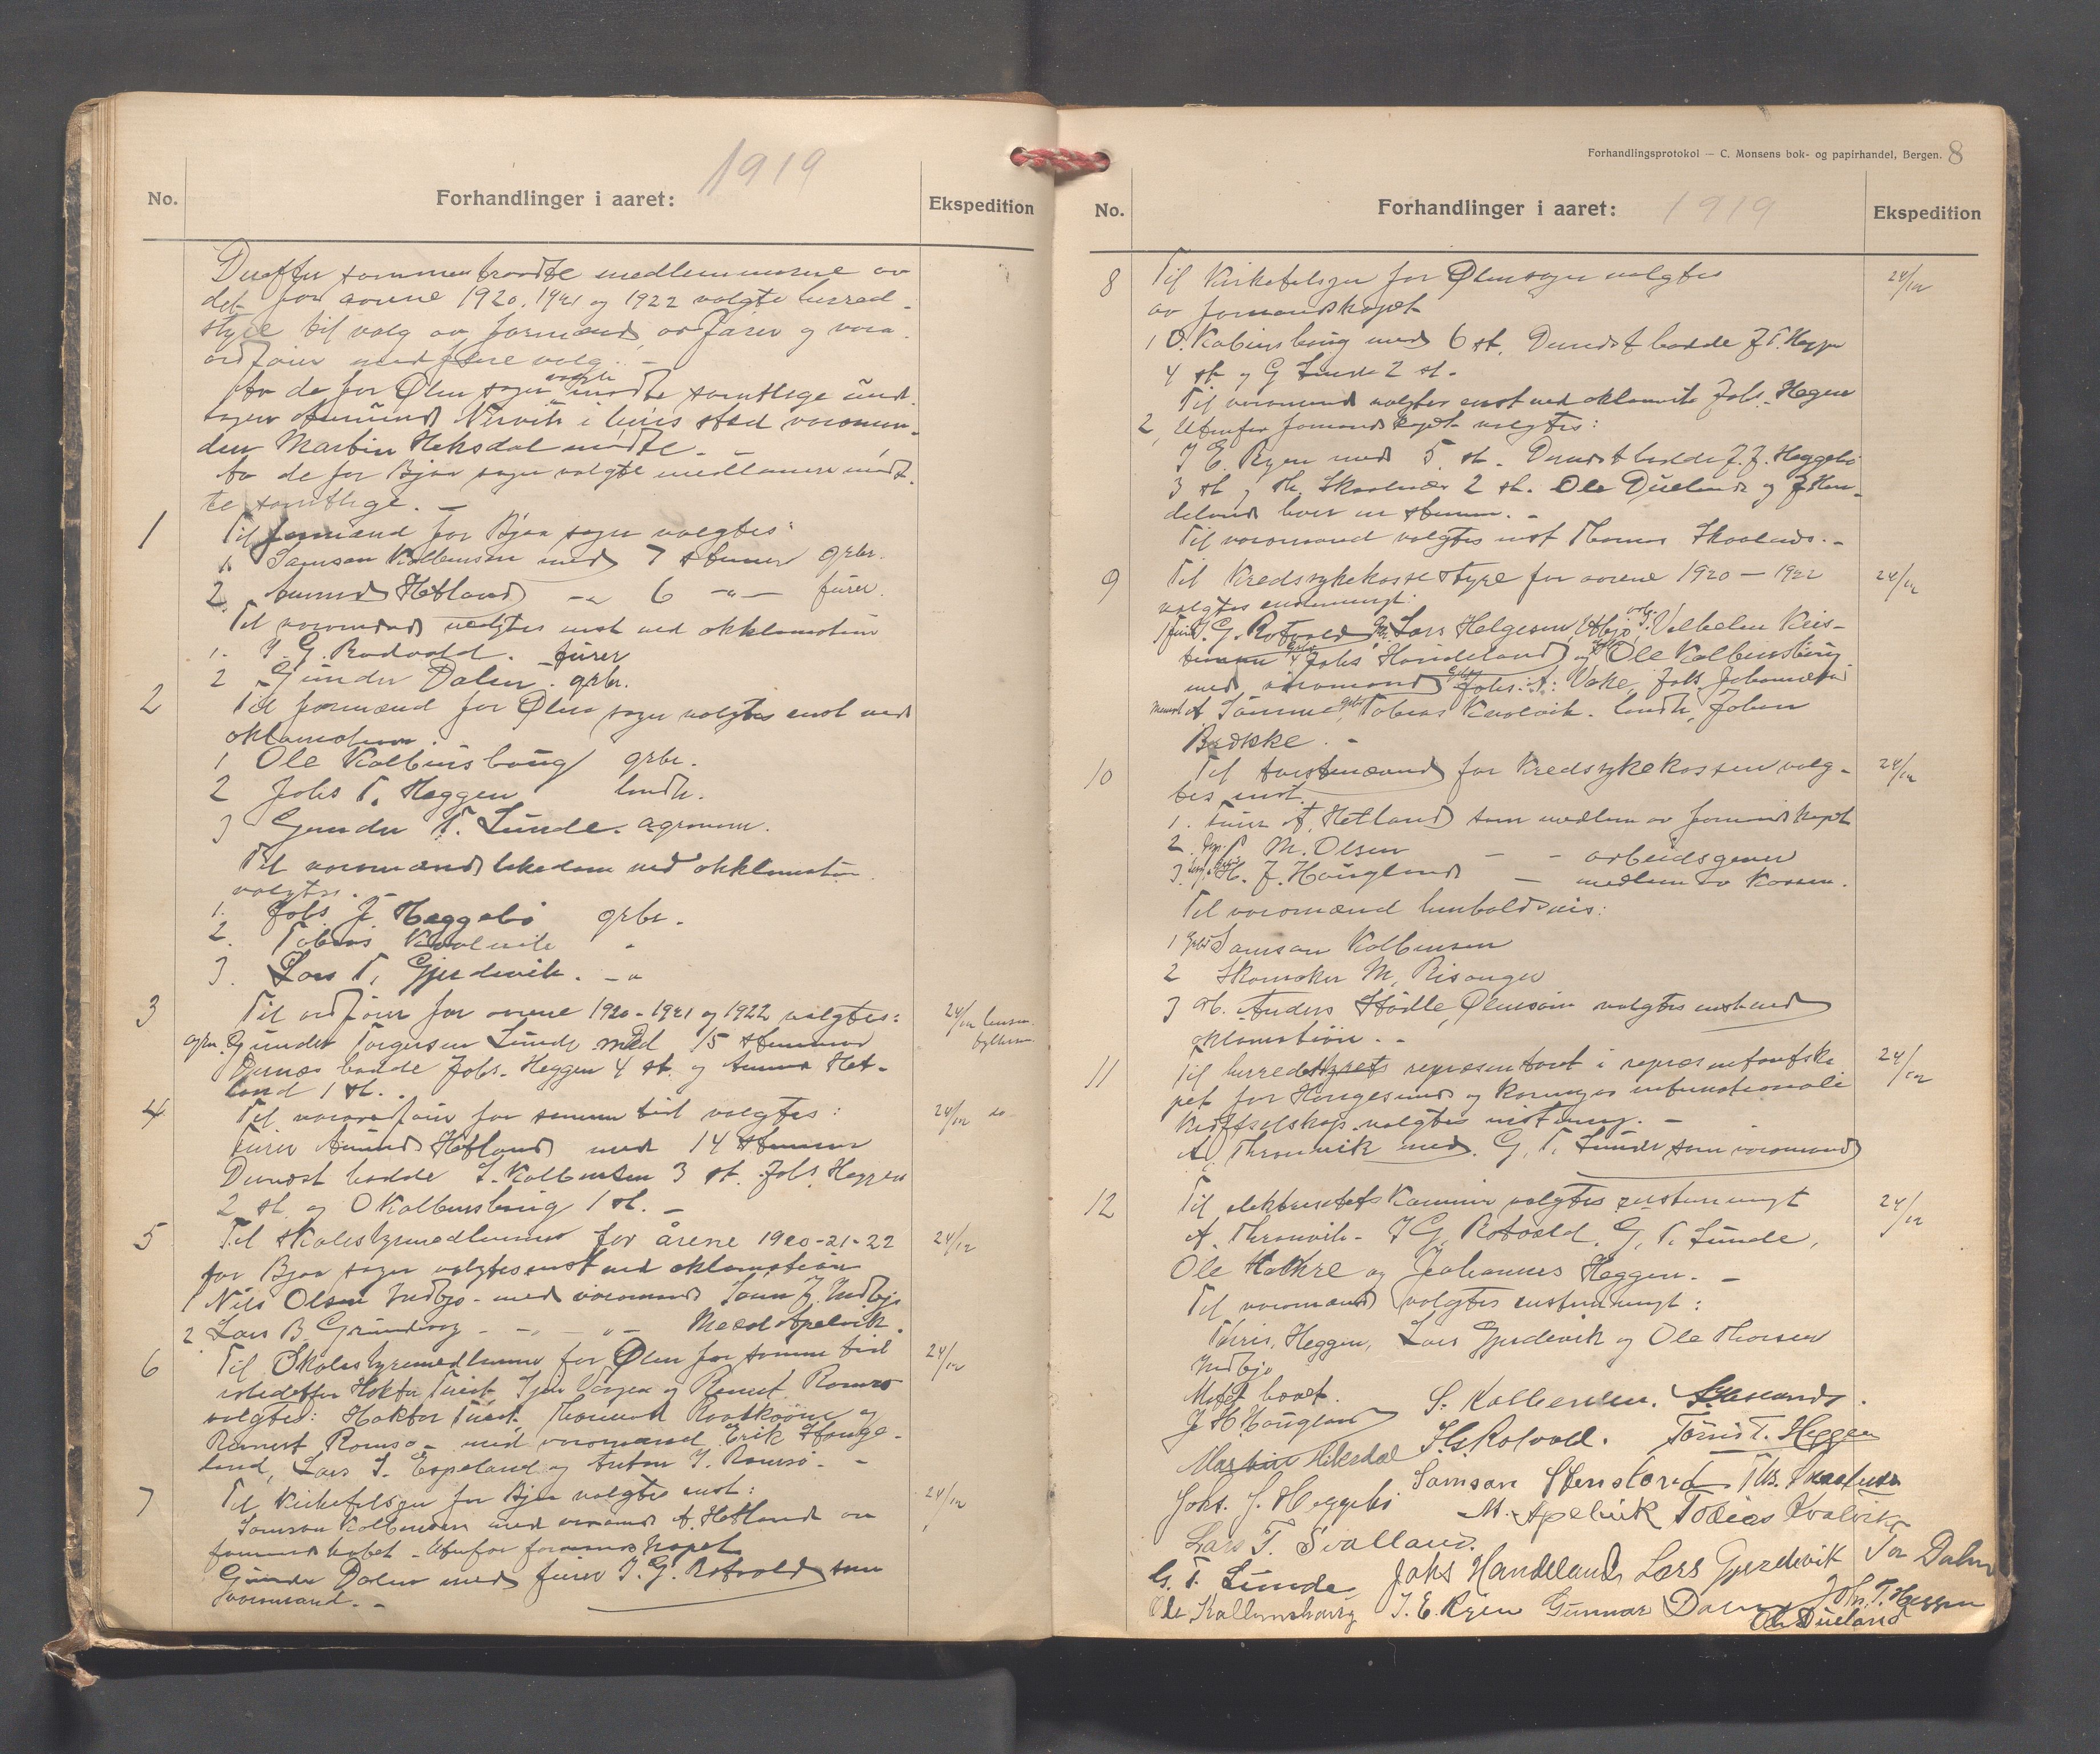 No.
Forhandlinger i aaret: 1919
Ekspedition
Derefter sammentraadte medlemmerne av
det for aarene 1920, 1921 og 1922 valgte herred-
styre til valg av formænd, ordfører og vara-
ordfører med flere valg. -
Av de for Ølen sogn valgte mødte samtlige und-
tagen Amund Nervik i hvis sted varaman-
den Martin Heksdal mødte. -
Av de for Bjoa sogn valgte medlemmer mød-
te samtlige. -
1 Til formænd for Bjoa sogn valgtes:
1. Samson Kolbensen med 7 stemmer grbr.
2. Amund Hetland -"- 6 -"- fører.
Til varamænd valgtes enst ved akklamation
1. I. G. Rodvald. fører
2 Gunder Dalen. grbr.
2 Til formænd for Ølen sogn valgtes enst ved
aklamation.
1 Ole Kolbensbaug grbr.
2 Johs T. Heggen landh.
3 Gunder T. Lunde. agronom.
Til varamænd likedan ved akklamation
valgtes. -
1. Johs. J. Heggebø grbr.
2. Tobias Kvalevik "
3. Lars T. Gjerdevik. -"
3 Til ordfører for aarene 1920-1921 og 1922 valgtes: 24/12
agrn. Gunder Torgersen Lunde med 15 stemmer
Dernæst hadde Johs. Heggen 4 st. og Amund Het-
land 1 st. .
4 Til varaordfører for samme tid valgtes: 24/12 do
Fører Amund Hetland med 14 stemmer
Dernæst hadde S. Kolbensen 3 st. Johs. Heggen
2 st. og O Kolbensbaug 1 st. -
5 Til skolestyremedlemmer for årene 1920-21-22 24/12
for Bjoa sogn valgtes enst ved aklamation
1 Nils Olsen Indbjo - med varamand J. Indbjo
2 Lars B. Grindvag - " - " - Mead Apelvik.
6 Til Skolestyremedlemmer for Ølen for samme tid 24/12
istedetfor Hoktor Tveit og Rasmus Romsø
valgtes: Hoktor Tveit, og
Romsø - med varamænd Erik Hauge-
land, Lars I. Espeland og Anton I. Romsø. -
7 Til Kirketilsyn for Bjoa valgtes enst: 24/12
Samson Kolbensen med varamd A. Hetland av
formandskabet. Utenfor formandskapet
Gunder Dalen med fører I. G. Rotvold som
varamand. -
Forhandlingsprotokol — C. Monsens bok- og papirhandel, Bergen. 8
No.
Forhandlinger i aaret: 1919
Ekspedition
8 Til Kirketilsyn for Ølensogn valgtes 24/12
av formandskapet
1 O. Kolbensbaug med 6 st. Dernæst hadde J. T. Heggen
4 st og G Lunde 2 st.
Til varamand valgtes enst ved aklamation Johs. Heggen
2, Utenfor formandskapet valgtes:
I E. Ryen med 5 st. Dernæst hadde J. J. Heggebø
3 st, Th. Skaalnes 2 st. Ole Dueland og J Han-
deland hver en stemme. -
Til varamand valgtes enst Thomas Skaalnes. -
9 Til Kredssykekassestyre for aarene 1920 — 1922 24/12
valgtes enstemmigt:
1 Fører I. G. Rotvold, Lars Helgesen Utbjo, Vilhelm Kris-
tensen Johs Handeland og Ole Kolbensbaug
med varamænd Johs. A. Vake, Johs. Johannessen
A Sømme, Tobias Kvalvik. landh. Johan
Bædkke. -
10 Til for Kredssykekassen valg- 24/12
tes enst.
1. Fører A. Hetland som medlem av formandskapet
2. P M. Olsen - - arbeidsgiver
3. H. J. Haugland - medlem av Kassen.
Til varamænd henholdsvis:
1 Grbr Samson Kolbensen
2 Skomaker M. Risanger
3 Anders Støle, Ølensøen valgtes enst ved
aklamation. -
11 Til herredstyrets repræsentant i repræsentantska- 24/12
pet for Haugesund og Karmøens interkommunale
kraftselskap valgtes enstemmig. -
A. Thronvik med G. T. Lunde som varamand
12 Til elektricitetskomite valgtes enstemmigt 24/12
A. Thronvik - I G. Rotvold. G. T. Lunde,
Ole Halkre og Johannes Heggen. -
Til varamænd valgtes enstemmigt:
Tørris Heggen, Lars Gjerdevik og Ole Thorsen
Indbjo
Møtet hævet.
J H Haugland S. Kolbensen. A. Hetland.
Martin Heksdal I. G. Rotvold. Tørris T. Heggen
Johs. J. Heggebø Samson Stenstered Ths. Skaalnes
Lars T. Svalland. M. Apelvik Tobias Kvalvik
G. T. Lunde Johs Handeland Lars Gjerdevik Tor Dalen
Ole Kolbensbaug I. E. Ryen Gunnar Dalen Joh. T. Heggen
Ole Dueland